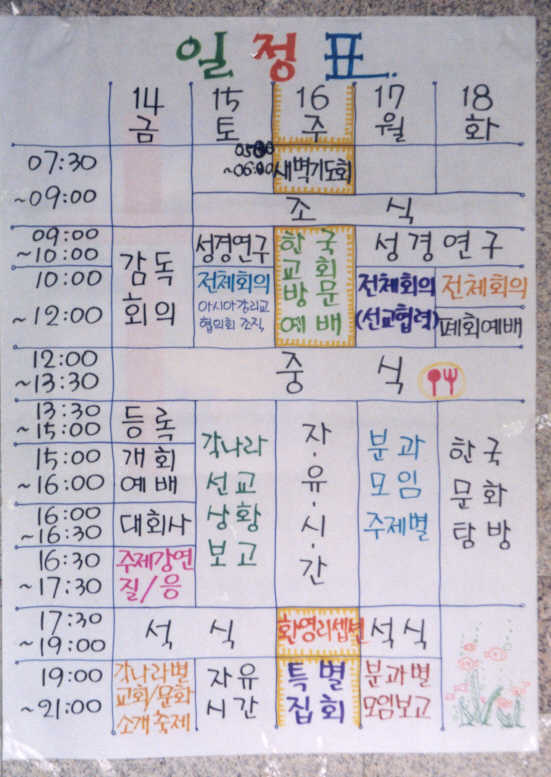 일정표
14 15 16 17 18
금 토 주 월 화
07:30
~09:00
0500
~06:00 새벽기도회
조 식
09:00
~10:00
감독
회의
성경연구
한국
교회
방문
예배
성경연구
10:00
~12:00
전체회의
아시아감리교
협의회 조직
전체회의
(선교협력)
전체회의
폐회예배
12:00
~13:30
중 식
13:30
~15:00
등록
각나라
선교
상황
보고
자·유·시·간
분과
모임
주제별
한국
문화
탐방
15:00
~16:00
개회
예배
16:00
~16:30
대회사
16:30
~17:30
주제강연
질/응
17:30
~19:00
석 식
환영리셉션
석식
19:00
~21:00
각나라별
교회/문화
소개축제
자유
시간
특별
집회
분과별
모임보고